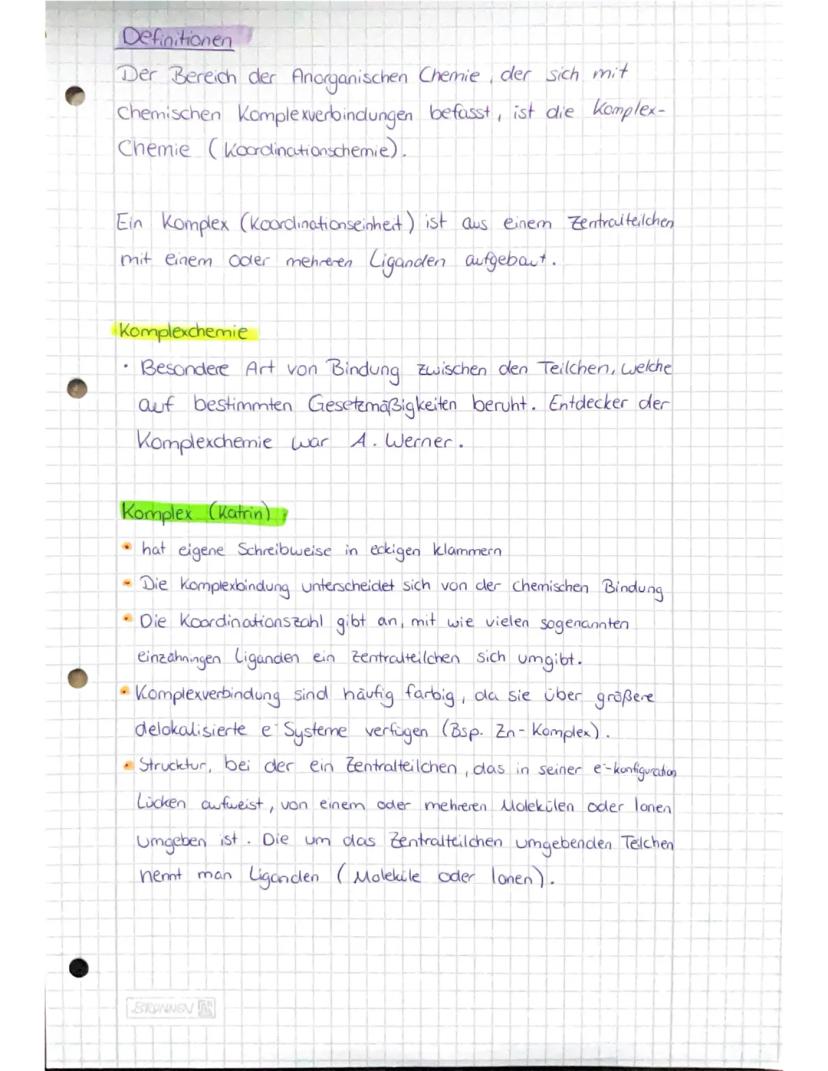 Definitionen
Der Bereich der Anorganischen Chemie, der sich mit
chemischen Komplexverbindungen befasst, ist die Komplex-
Chemie (Koordinationschemie).
Ein Komplex (Koordinationseinheit) ist aus einem Zentralteilchen
mit einem oder mehreren Liganden aufgebaut.
Komplexchemie
· Besondere Art von Bindung zwischen den Teilchen, welche
auf bestimmten Gesetzmäßigkeiten beruht. Entdecker der
Komplexchemie war A. Werner.
Komplex (Katrin):
• hat eigene Schreibweise in eckigen Klammern
• Die Komplexbindung unterscheidet sich von der Chemischen Bindung
• Die Koordinationszahl gibt an, mit wie vielen sogenannten
einzähningen Liganden ein Zentralteilchen sich umgibt.
• Komplexverbindung sind häufig farbig, da sie über größere
delokalisierte e⁻ Systeme verfügen (Bsp. Zn-Komplex).
• Strucktur, bei der ein Zentralteilchen, das in seiner e⁻-konfiguration
Lücken aufweist, von einem oder mehreren Molekülen oder Ionen
umgeben ist. Die um das Zentralteilchen umgebenden Teilchen
nennt man Liganden (Moleküle oder Ionen).
BRUNNEN